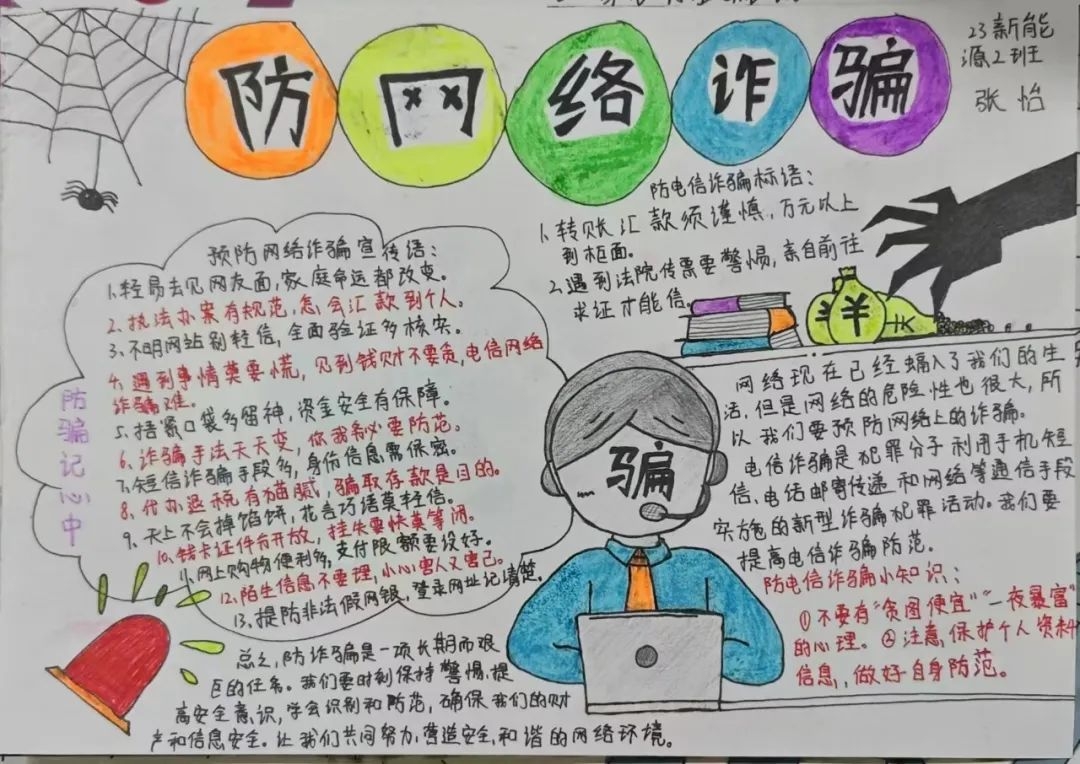 防网络诈骗
23新能
源2班
张怡
防电信诈骗标语：
1、转账汇款须谨慎，万元以上
到柜面。
2、遇到法院传需要警惕，亲自前往
求证才能信。
预防网络诈骗宣传语：
1、轻易去见网友面，家庭命运都改变。
2、执法办案有规范，怎会汇款到个人。
3、不明网站别轻信，全面验证多核实。
4、遇到事情莫要慌，见到钱财不要贪，电信网络
诈骗难。
5、捂紧口袋多留神，资金安全有保障。
6、诈骗手法天天变，你我务必要防范。
7、短信诈骗手段多，身份信息需保密。
8、代办退税有猫腻，骗取存款是目的。
9、天上不会掉馅饼，花言巧语莫轻信。
10、钱卡证件有开放，挂失要快莫等闲。
11、网上购物便利多，支付限额要设好。
12、陌生信息不要理，小心害人又害己。
13、提防非法假网银，登录网址记清楚。
防骗记心中
¥
骗
网络现在已经融入了我们的生
活，但是网络的危险性也很大，所
以我们要预防网络上的诈骗。
电信诈骗是犯罪分子利用手机短
信、电话邮寄传递和网络等通信手段
实施的新型诈骗犯罪活动。我们要
提高电信诈骗防范。
防电信诈骗小知识：
①不要有“贪图便宜”“一夜暴富”
的心理。②注意保护个人资料
信息，做好自身防范。
总之，防诈骗是一项长期而艰
巨的任务。我们要时刻保持警惕，提
高安全意识，学会识别和防范，确保我们的财
产和信息安全。让我们共同努力，营造安全、和谐的网络环境。